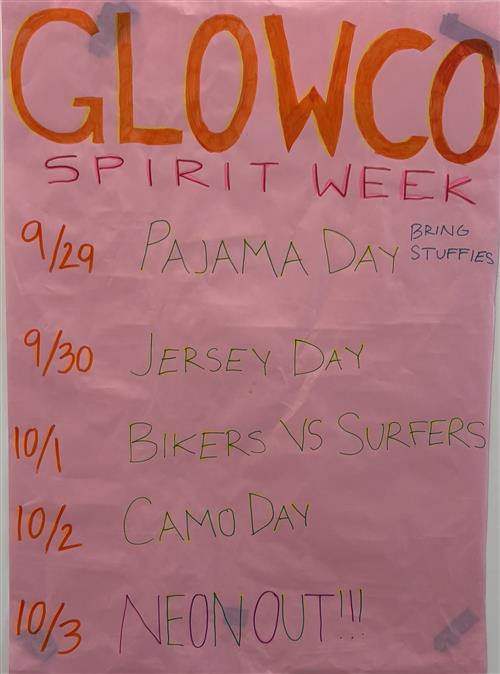 GLOWCO
SPIRIT WEEK
9/29 PAJAMA DAY BRING STUFFIES
9/30 JERSEY DAY
10/1 BIKERS VS SURFERS
10/2 CAMO DAY
10/3 NEON OUT!!!